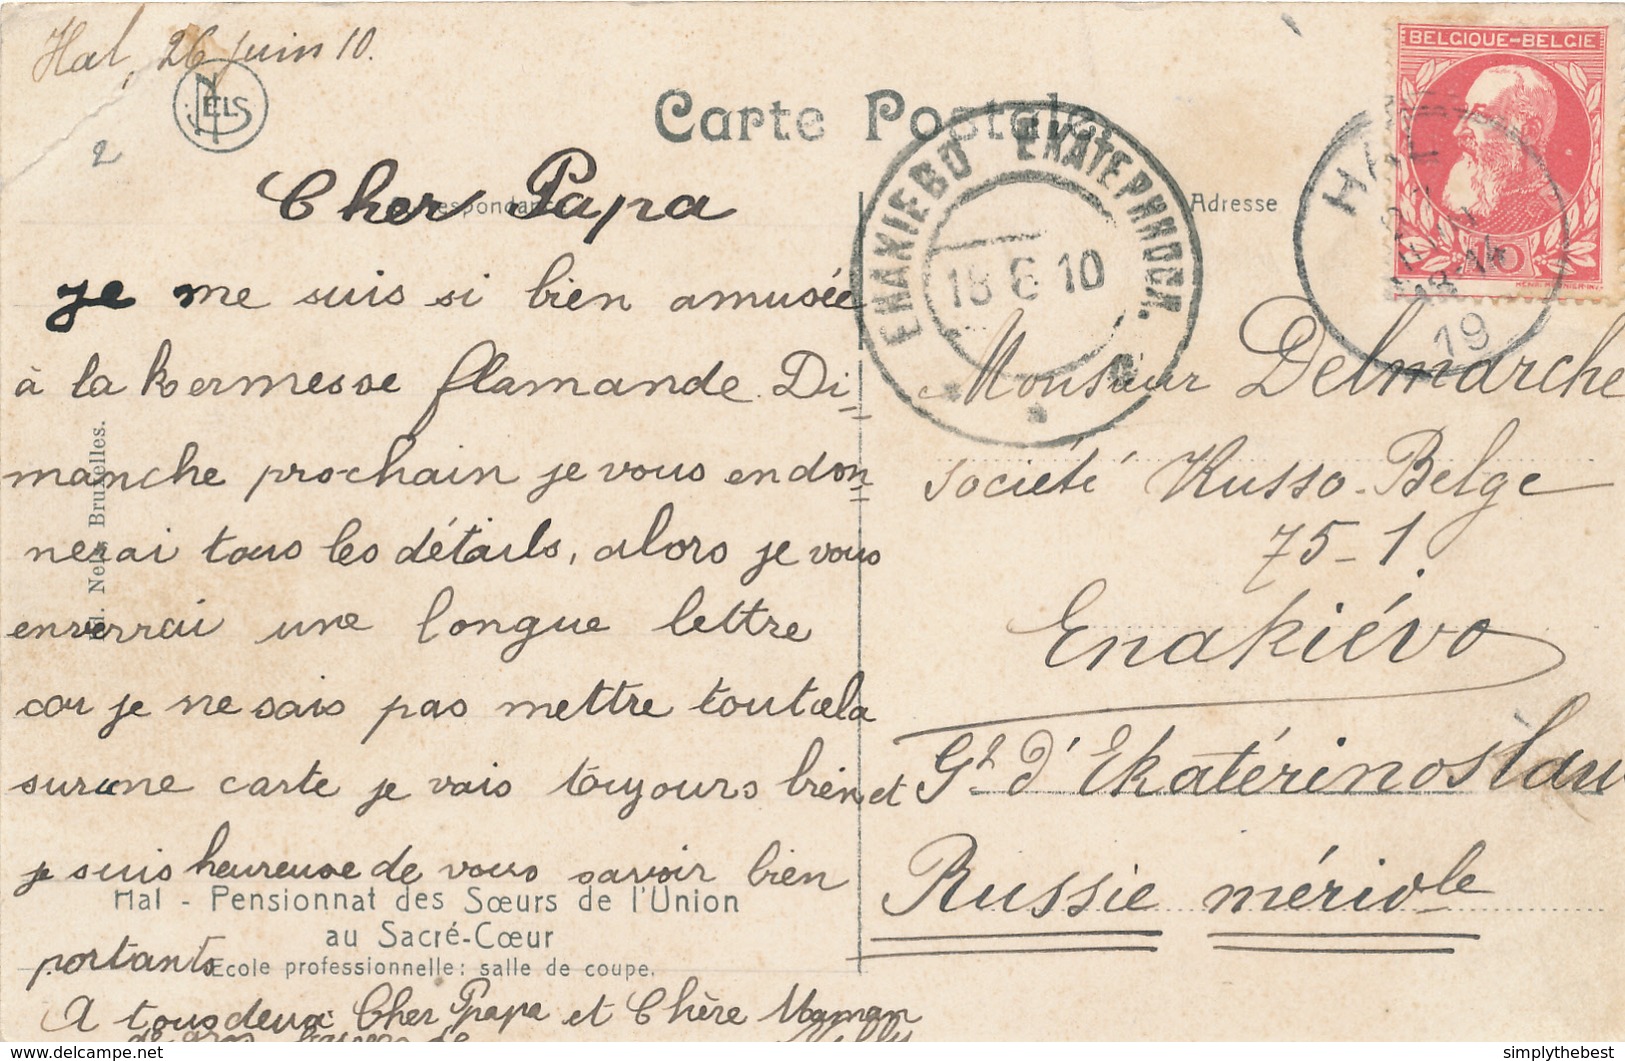 Hal, 26 juin 10.
NELS
2
Carte Postale
BELGIQUE-BELGIE
10
HAL
19
ЕНАКІЕВО ЕКАТЕРИНОСЛ.
18 6 10
Correspondance
Adresse
Cher Papa
je me suis si bien amusée
à la kermesse flamande. Di-
manche prochain je vous en don-
nerai tous les détails, alors je vous
enverrai une longue lettre
car je ne sais pas mettre tout cela
sur une carte je vais toujours bien et
je suis heureuse de vous savoir bien
portants
A tous deux Cher Papa et Chère Maman
de gros baisers de
Nelly
Monsieur Delmarche
Société Russo-Belge
75-1.
Enakiévo
Gt d'Ekatérinoslau
Russie méridle
Ed. Nels, Bruxelles.
Hal - Pensionnat des Sœurs de l'Union
au Sacré-Cœur
Ecole professionnelle: salle de coupe.
delcampe.net
simplythebest